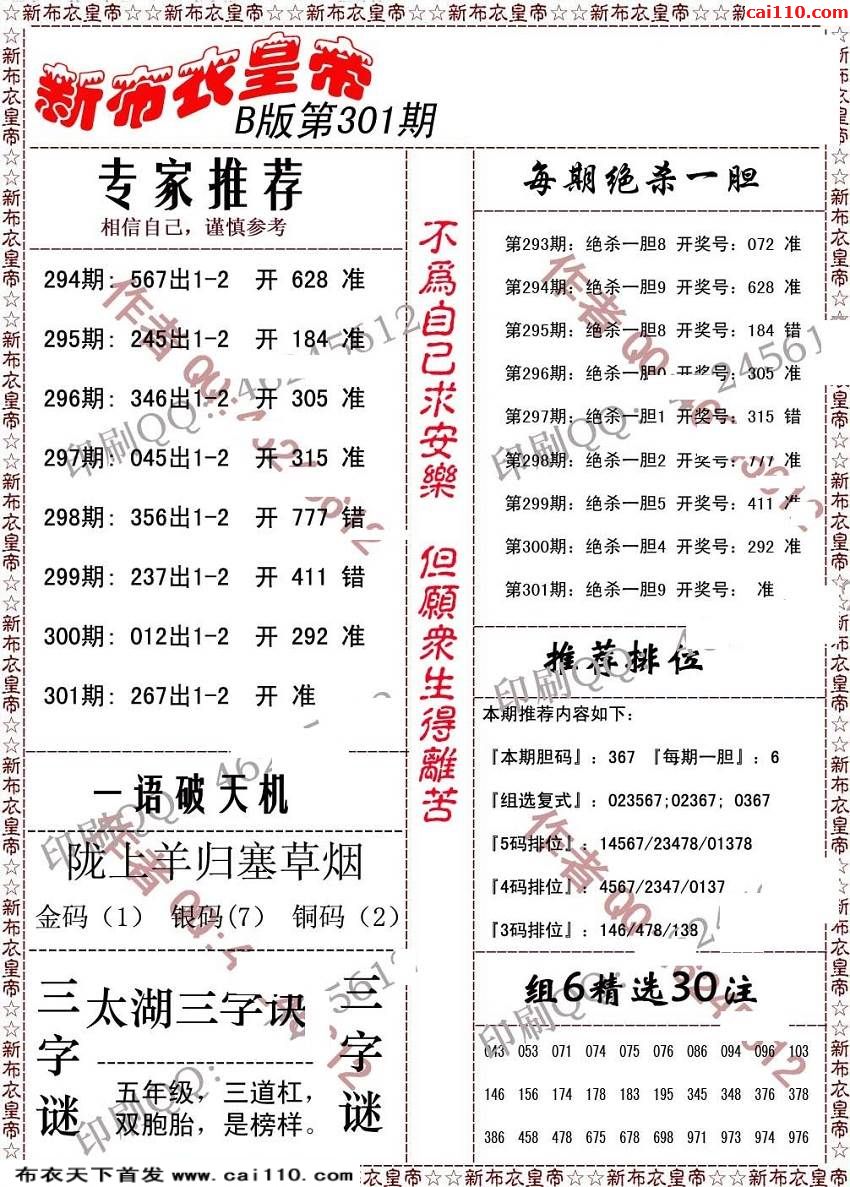 ☆☆新布衣皇帝☆☆新布衣皇帝☆☆新布衣皇帝☆☆新布衣皇帝☆☆新布衣皇帝☆☆新
cai110.com
新布衣皇帝
B版第301期
专家推荐
相信自己，谨慎参考
294期: 567出1-2 开 628 准
295期: 245出1-2 开 184 准
296期: 346出1-2 开 305 准
297期: 045出1-2 开 315 准
298期: 356出1-2 开 777 错
299期: 237出1-2 开 411 错
300期: 012出1-2 开 292 准
301期: 267出1-2 开 准
一语破天机
陇上羊归塞草烟
金码（1） 银码(7) 铜码（2）
三字谜
太湖三字诀
五年级，三道杠，
双胞胎，是榜样。
三字谜
不爲自己求安樂
但願衆生得離苦
每期绝杀一胆
第293期: 绝杀一胆8 开奖号: 072 准
第294期: 绝杀一胆9 开奖号: 628 准
第295期: 绝杀一胆8 开奖号: 184 错
第296期: 绝杀一胆0 开奖号: 305 准
第297期: 绝杀一胆1 开奖号: 315 错
第298期: 绝杀一胆2 开奖号: 777 准
第299期: 绝杀一胆5 开奖号: 411 准
第300期: 绝杀一胆4 开奖号: 292 准
第301期: 绝杀一胆9 开奖号: 准
推荐排位
本期推荐内容如下:
『本期胆码』: 367 『每期一胆』: 6
『组选复式』: 023567;02367; 0367
『5码排位』: 14567/23478/01378
『4码排位』: 4567/2347/0137
『3码排位』: 146/478/138
组6精选30注
043 053 071 074 075 076 086 094 096 103
146 156 174 178 183 195 345 348 376 378
386 458 478 675 678 698 971 973 974 976
布衣天下首发 www.cai110.com
衣皇帝☆☆新布衣皇帝☆☆新布衣皇帝☆☆新布衣皇帝☆☆